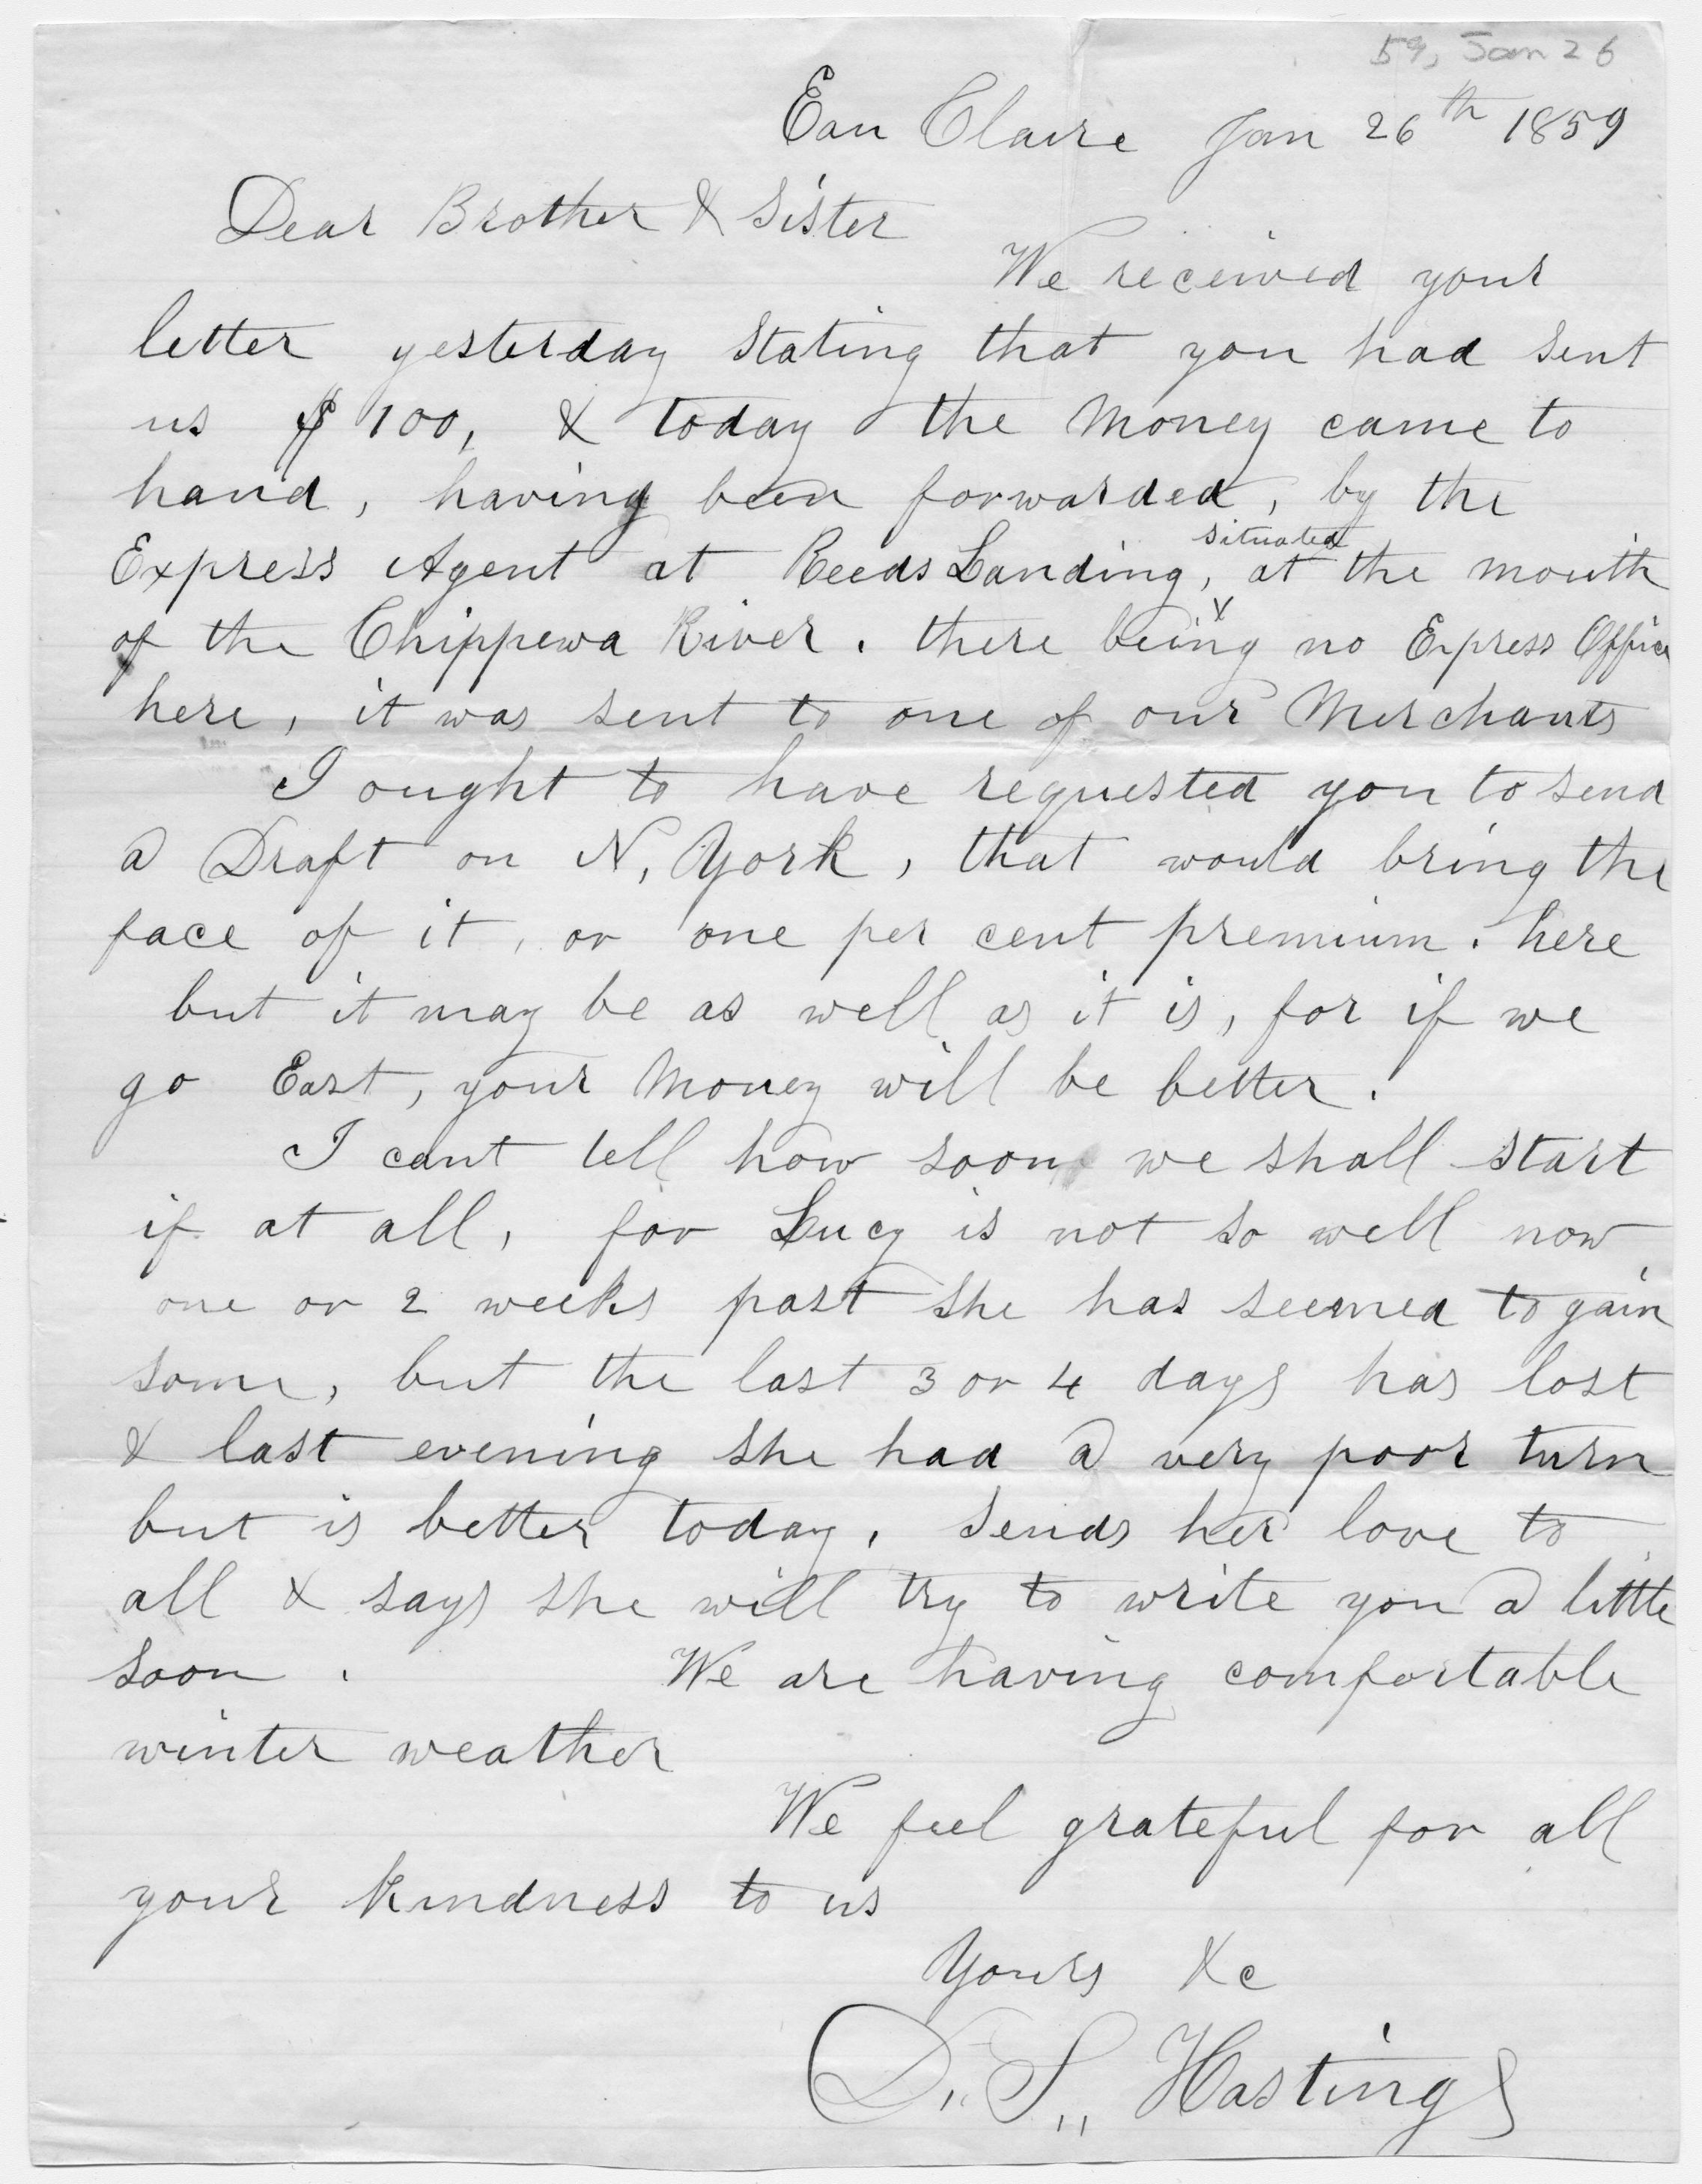 59, Jan 26
Eau Claire Jan 26th 1859
Dear Brother & Sister
We received your
letter yesterday stating that you had sent
us $100, & today the Money came to
hand, having been forwarded, by the
Express Agent at Reeds Landing, situated at the mouth
of the Chippewa River. there being no Express Office
here, it was sent to one of our Merchants
I ought to have requested you to send
a Draft on N, York, that would bring the
face of it, or one per cent premium. here
but it may be as well as it is, for if we
go East, your Money will be better.
I cant tell how soon we shall start
if at all, for Lucy is not so well now
one or 2 weeks past she has seemed to gain
some, but the last 3 or 4 days has lost
& last evening she had a very poor turn
but is better today, sends her love to
all & says she will try to write you a little
soon. We are having comfortable
winter weather
We feel grateful for all
your kindness to us
Yours &c
D,, S,, Hastings